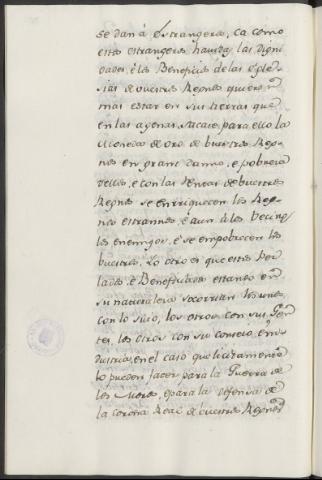 se dan á Estrangeros, ca como
estos estrangeros havidas las digni
dades, é los Beneficios de las Egle-
sias de vuestros Regnos quieren
mas estar en sus tierras que
en las agenas, sacase para ello la
Moneda de oro de vuestros Reg-
nos en grant danno, é pobreza
dellos, é con las Rentas de vuestros
Regnos se enriquecen los Reg-
nos estrannos, é aun á las vecinos
los enemigos, é se empobrecen los
vuestros. Lo otro es que estos Per
lados, é Beneficiados estando en
su naturaleza socorrian los unos
con lo suio, los otros con sus Gen
tes, los otros con su consejo, é in
dustria, en el caso que licitamente
lo pueden facer para la Guerra de
los Moros, é para la defensa de
la Corona Real de vuestros Regnos